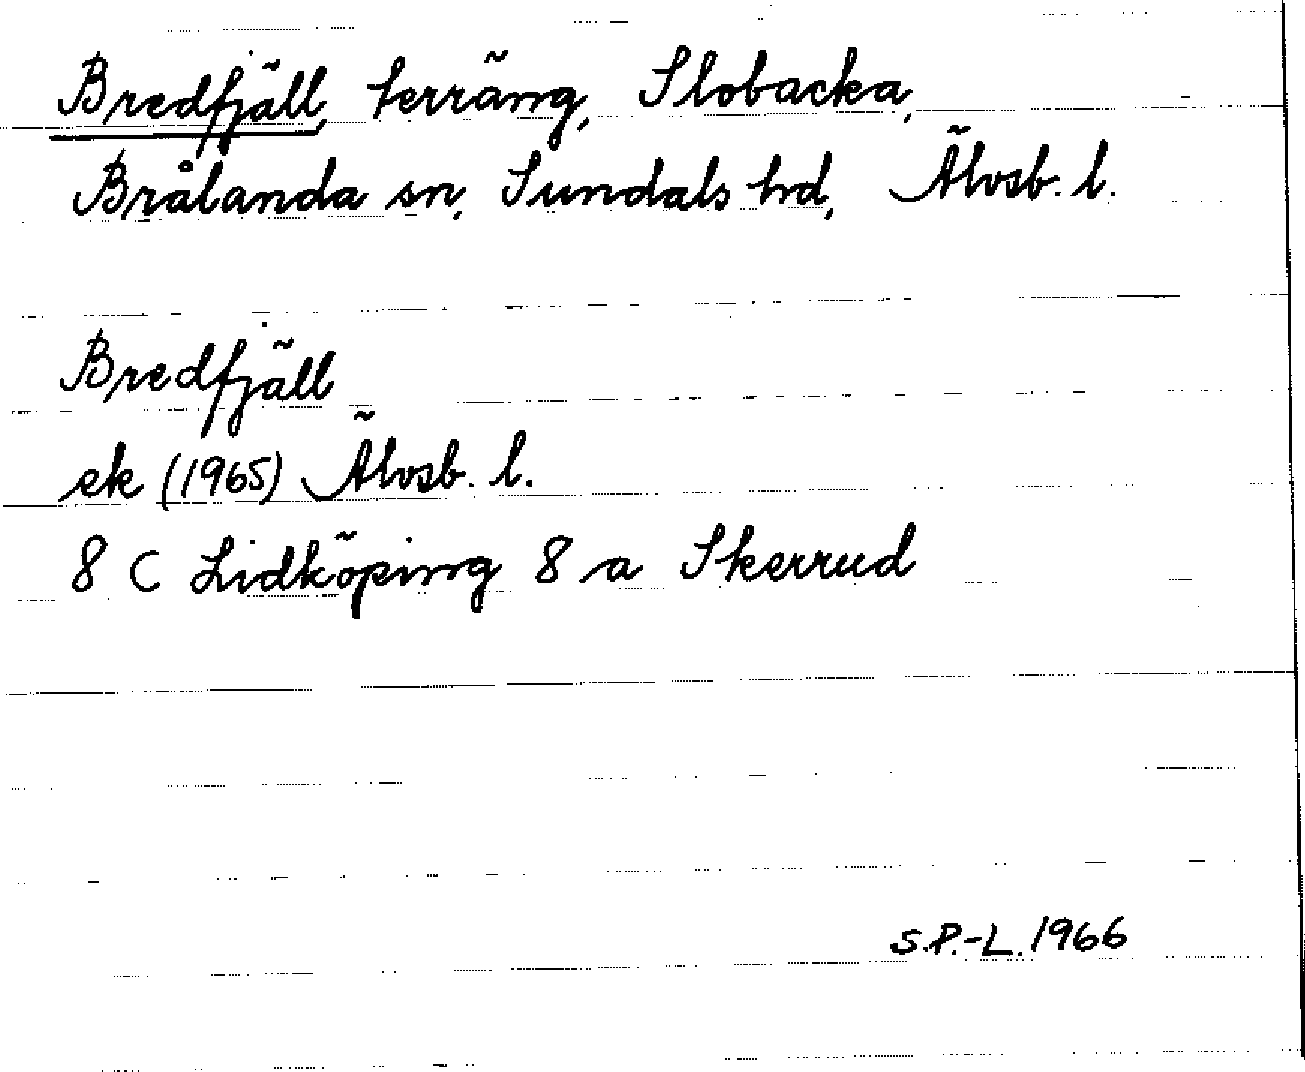 Bredfjäll, terräng, Slobacka,
Brålanda sn, Sundals hd, Älvsb. l.
Bredfjäll
ek (1965) Älvsb. l.
8 C Lidköping 8 a Skerrud
S.P.-L. 1966